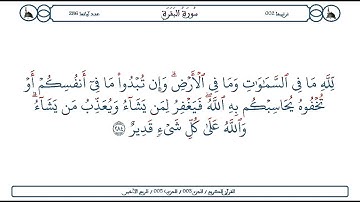 ترتيبها 002 سُورَةُ البَقَرَةِ عدد آياتها 286
لِلَّهِ مَا فِي السَّمَاوَاتِ وَمَا فِي الْأَرْضِ ۗ وَإِن تُبْدُوا مَا فِي أَنفُسِكُمْ أَوْ
تُخْفُوهُ يُحَاسِبْكُم بِهِ اللَّهُ ۖ فَيَغْفِرُ لِمَن يَشَاءُ وَيُعَذِّبُ مَن يَشَاءُ ۗ
وَاللَّهُ عَلَىٰ كُلِّ شَيْءٍ قَدِيرٌ ٢٨٤
القرآن الكريم / الجزء 003 / الحزب 005 / الربع الخامس